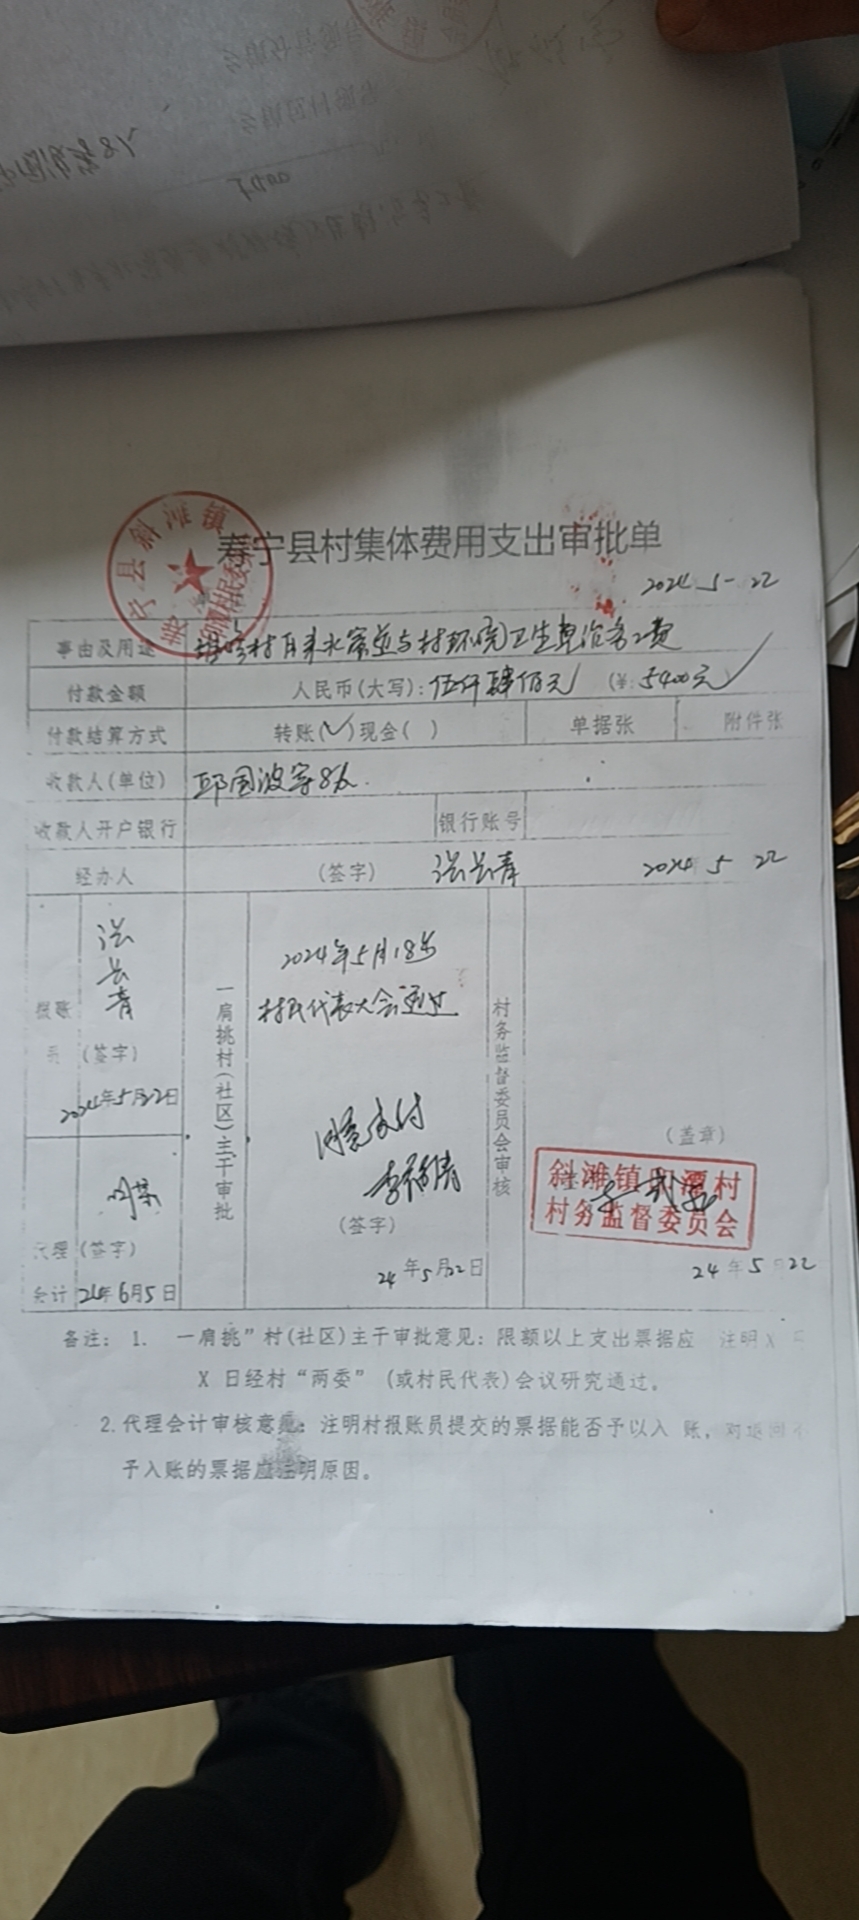 寿宁县村集体费用支出审批单
2024 5-22
事由及用途 村自来水管道与村环境卫生整治务工费
付款金额 人民币(大写): 伍仟肆佰元 (¥: 5400元
付款结算方式 转账(✓)现金( ) 单据张 附件张
收款人(单位) 邱国波等8人.
收款人开户银行 银行账号
经办人 (签字) 张长青 2024 5 22
报账员 张长青 (签字) 2024年5月22日
代理会计 (签字) 24年6月5日
一肩挑村(社区)主干审批
2024年5月18日
村民代表大会通过
同意支付
(签字)
24年5月22日
村务监督委员会审核
(盖章)
斜滩镇 村
村务监督委员会
24年5月22
寿宁县斜滩镇
备注: 1. 一肩挑"村(社区)主干审批意见: 限额以上支出票据应 注明X 月
X 日经村"两委" (或村民代表)会议研究通过。
2.代理会计审核意见: 注明村报账员提交的票据能否予以入 账, 对退回不
予入账的票据应注明原因。